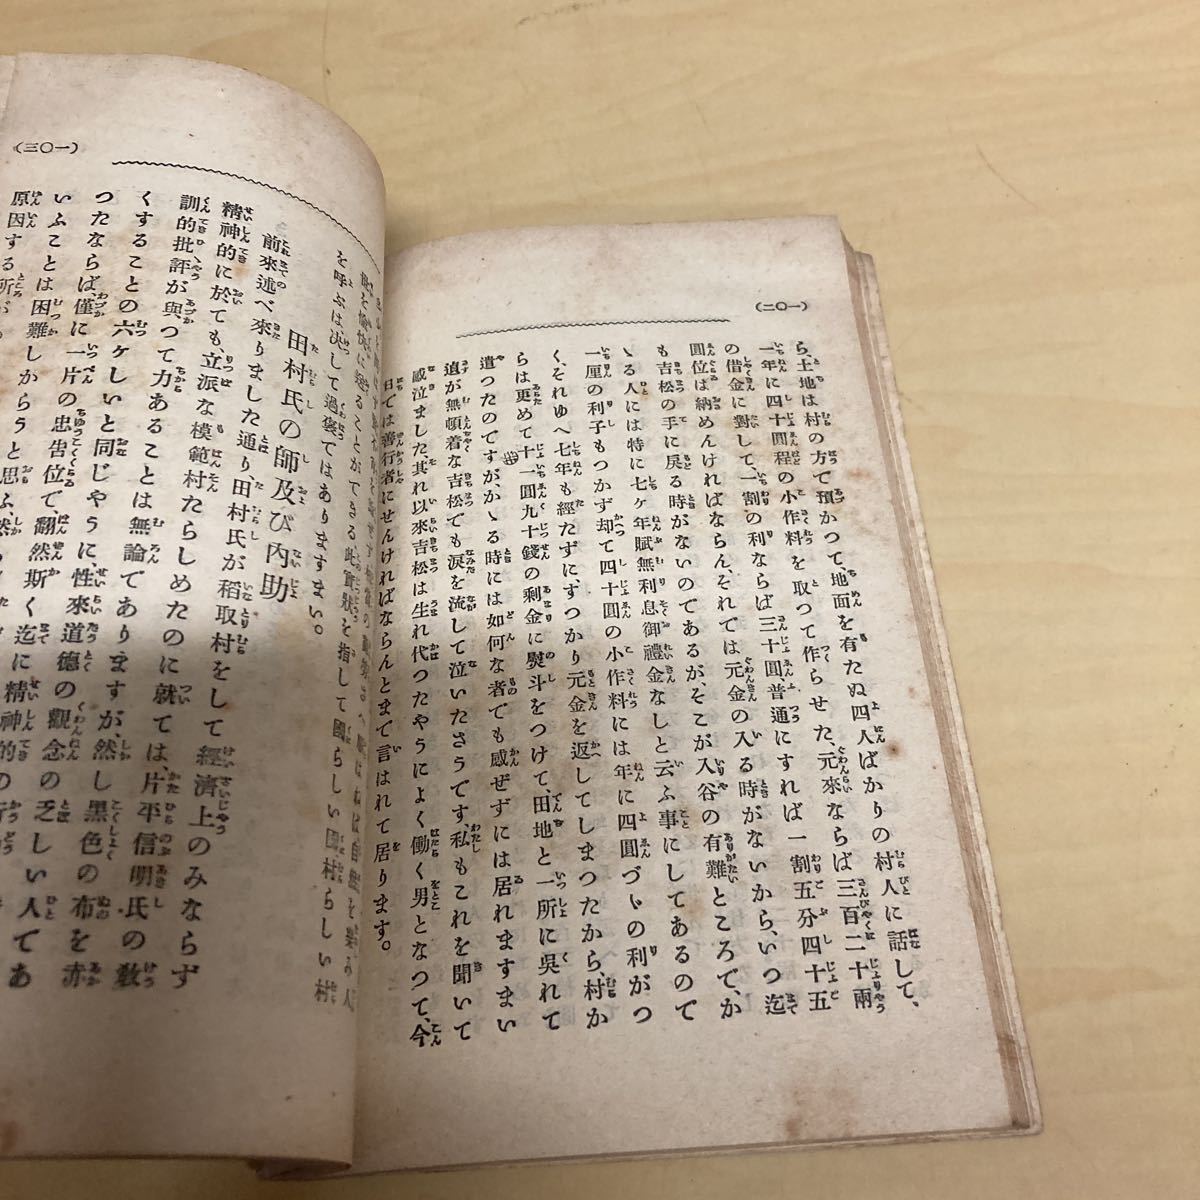 (一〇二)
ら、土地は村の方で預かつて、地面を有たぬ四人ばかりの村人に話して、
一年に四十圓程の小作料を取つて作らせた、元來ならば三百二十兩
の借金に對して、一割の利ならば三十圓普通にすれば一割五分四十五
圓位は納めんければならん、それでは元金の入る時がないから、いつ迄
も吉松の手に戻る時がないのであるが、そこが入谷の有難ところで、か
ゝる人には特に七ヶ年賦無利息御禮金なしと云ふ事にしてあるので
一厘の利子もつかず却て四十圓の小作料には年に四圓づゝの利がつ
く、それゆへ七年も經たずに、ずつかり元金を返してしまつたから、村か
らは更めて十一圓九十錢の剩金に熨斗をつけて、田地と一所に吳れて
遣つたのですが、かゝる時には如何な者でも感ぜずには居れますまい
遉が無頓着な吉松でも淚を流して泣いたさうです、私もこれを聞いて
感泣ました其れ以來吉松は生れ代つたやうによく働く男となつて、今
日では善行者にせんければならんとまで言はれて居ります。
(一〇三)
を呼ぶは決して過褒ではありますまい。
田村氏の師及び內助
前來述べ來りました通り田村氏が稻取村をして經濟上のみならず
精神的に於ても、立派な模範村たらしめたのに就ては、片平信明氏の敎
訓的批評が與つて力あることは無論でありますが、然し黑色の布を赤
くすることの六ヶしいと同じやうに、性來道德の觀念の乏しい人であ
つたならば、僅に一片の忠吿位で、翻然斯く迄に精神的の
いふことは困難しからうと思ふ、然
原因する所が